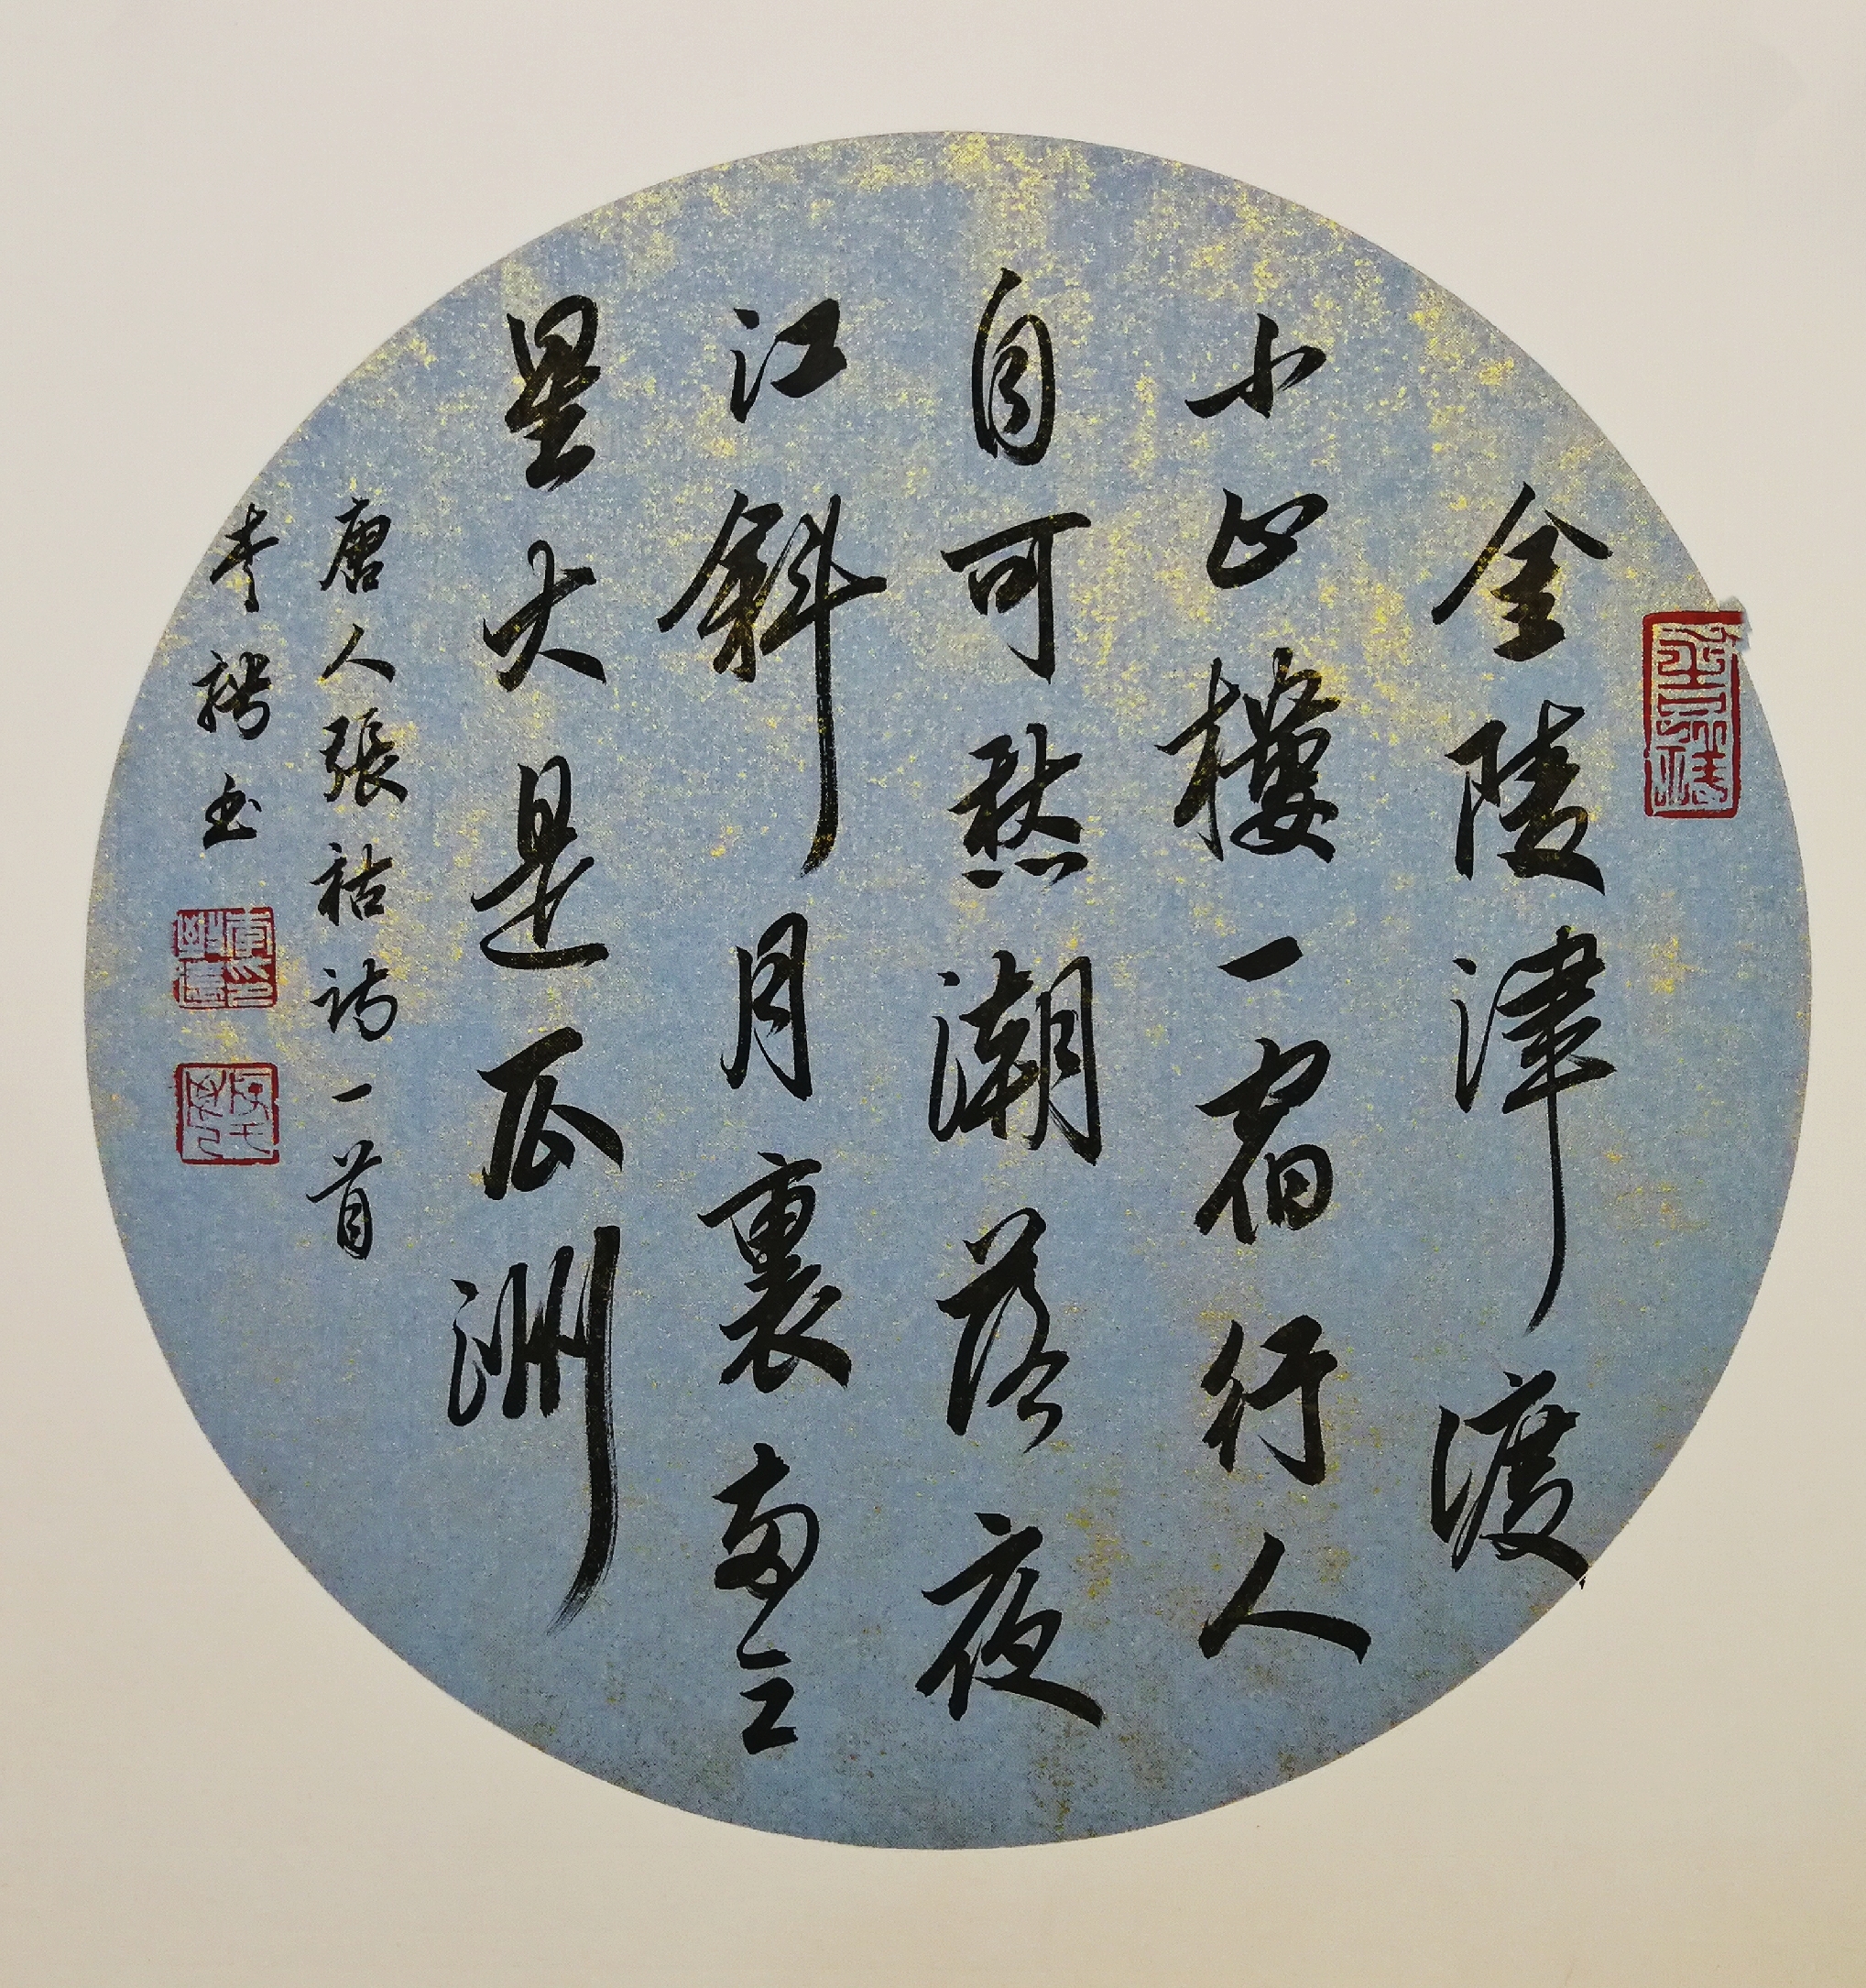 金陵津渡
小山樓一宿行人
自可愁潮落夜
江斜月裏兩三
星火是瓜洲
唐人張祜詩一首
李书